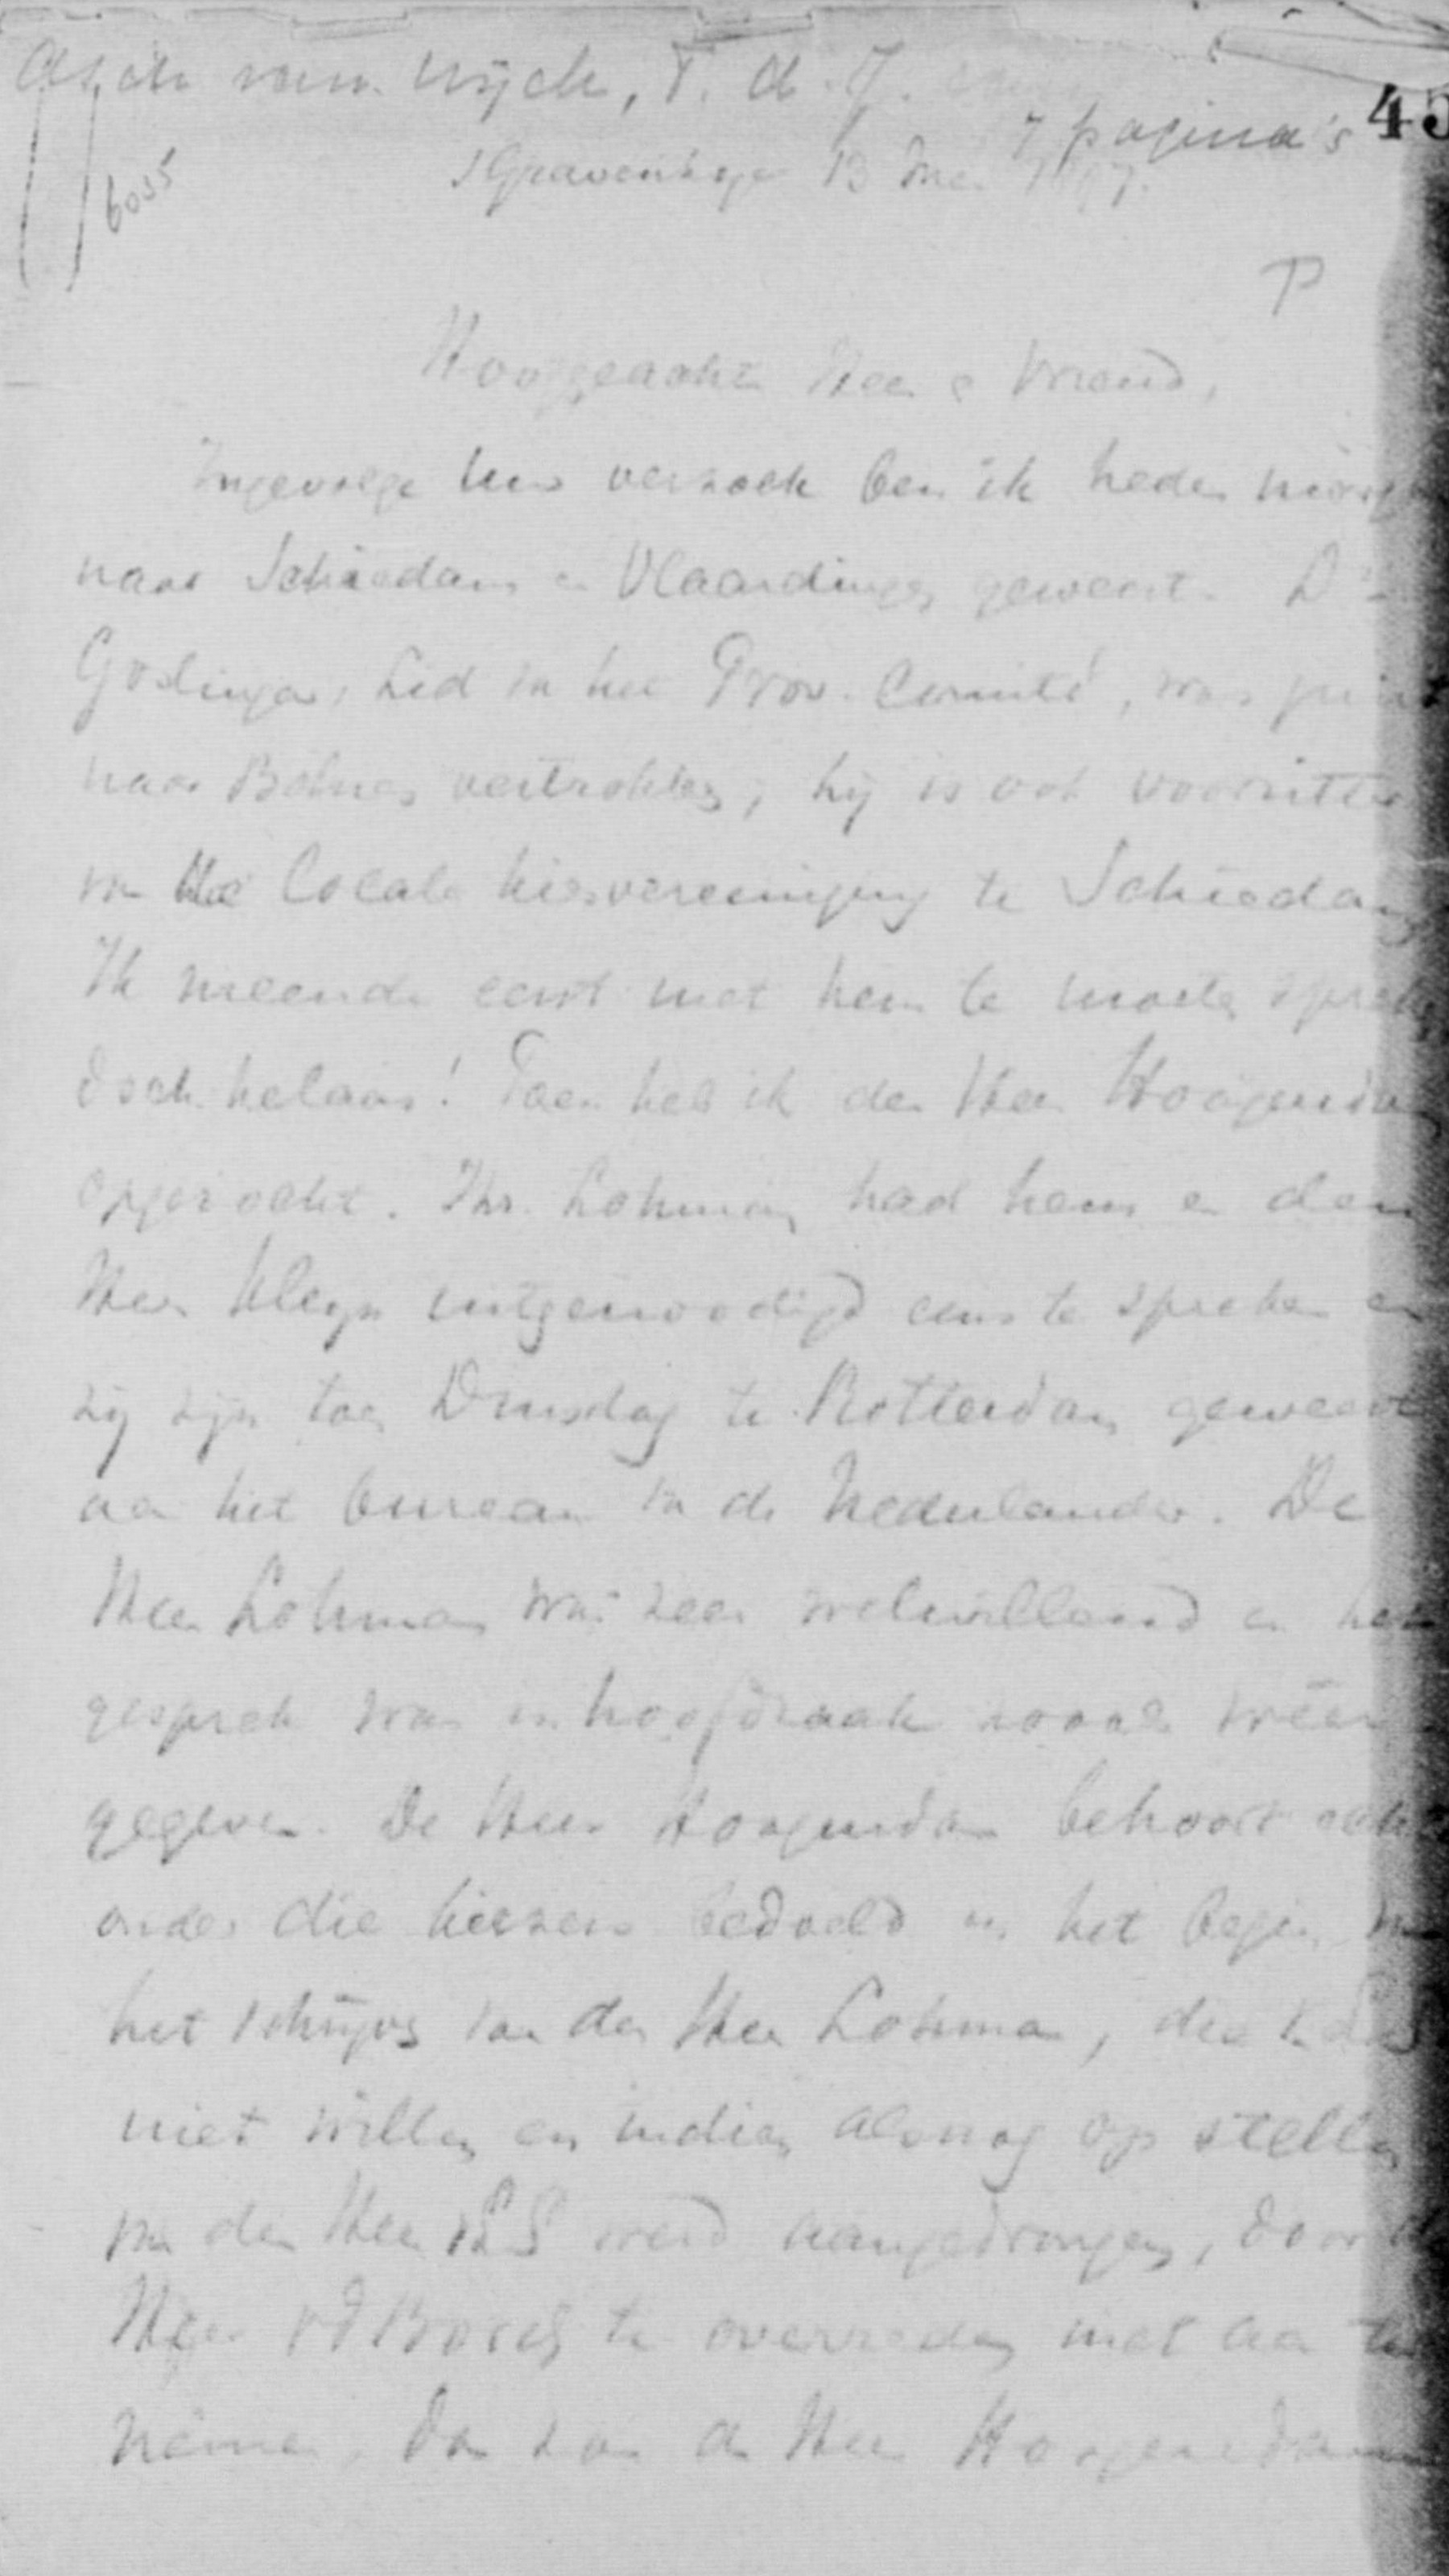 Asch van Wijck, T. d. J.
7 pagina's 45
6055
sGravenhage 13 Mei 1897.
P
Hooggeachte Heer & Vriend,
Ingevolge Uw verzoek ben ik heden morgen
naar Schiedam en Vlaardingen geweest. Ds
Godlinga, Lid in het Prov. Comité, was juist
naar Bolnes vertrokken; hij is ook voorzitter
van de locale kiesvereeniging te Schiedam
Ik meende eerst met hem te moeten spreken
doch helaas! Toen heb ik den Heer Hoogendam
opgezocht. Jhr. Lohman had hem en den
Heer Kleyn uitgenoodigd eens te spreken en
zij zijn toen Dinsdag te Rotterdam geweest
aan het bureau van de Nederlander. De
Heer Lohman was zeer welwillend en het
gesprek was in hoofdzaak zooals weer
gegeven. De Heer Hoogendam behoort ook
onder die kiezers bedoeld in het begin van
het schrijven van den Heer Lohman, die
niet willen en indien alsnog op stellen
van den Heer werd aangedrongen, door
Heer vd Bosch te overreden niet aan te
nemen, dan zou de Heer Hoogendam